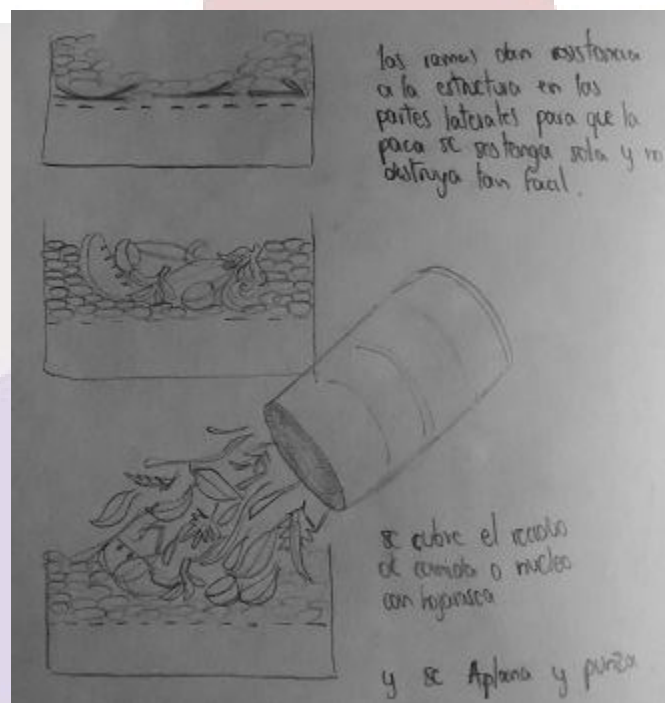 las ramas dan resistencia
a la estructura en las
partes laterales para que la
paca se sostenga sola y no
destruya tan facil.
se cubre el
de comida o nucleo
con hojarasca
y se Aplana y punza